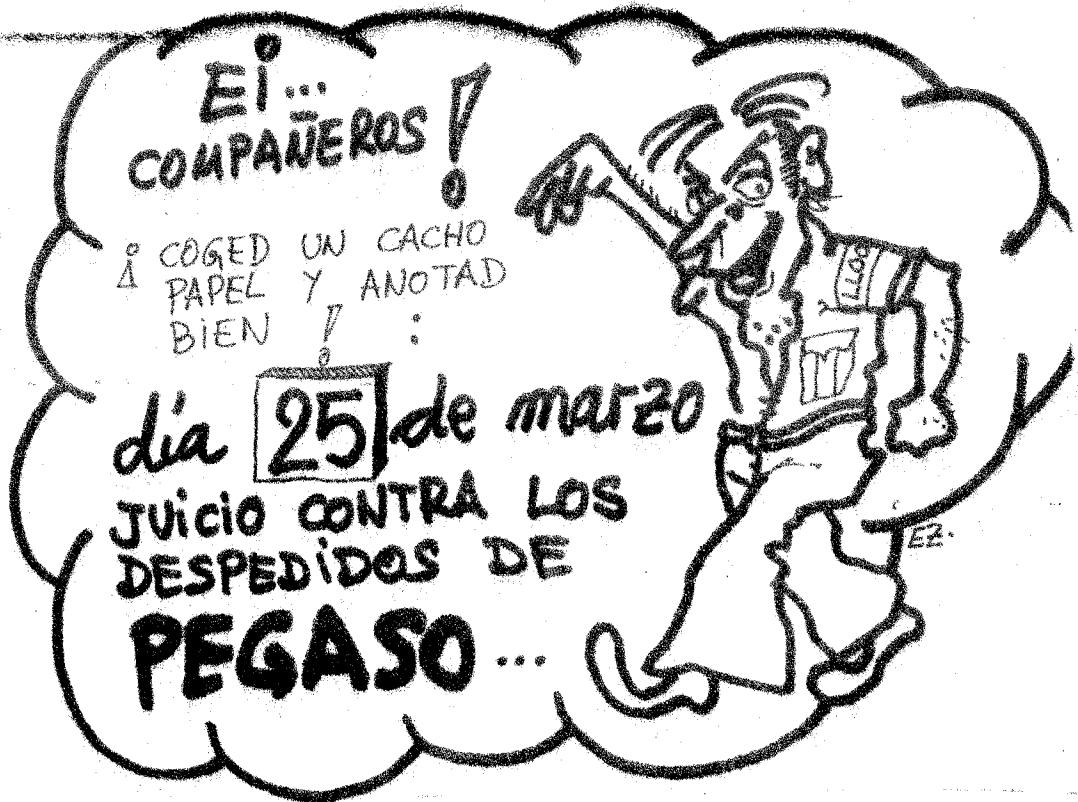 Ei...
COMPAÑEROS!
¡ COGED UN CACHO
PAPEL Y ANOTAD
BiEN ! :
día 25 de marzo
JUiCiO CONTRA LOS
DESPEDiDOS DE
PEGASO...
EZ.